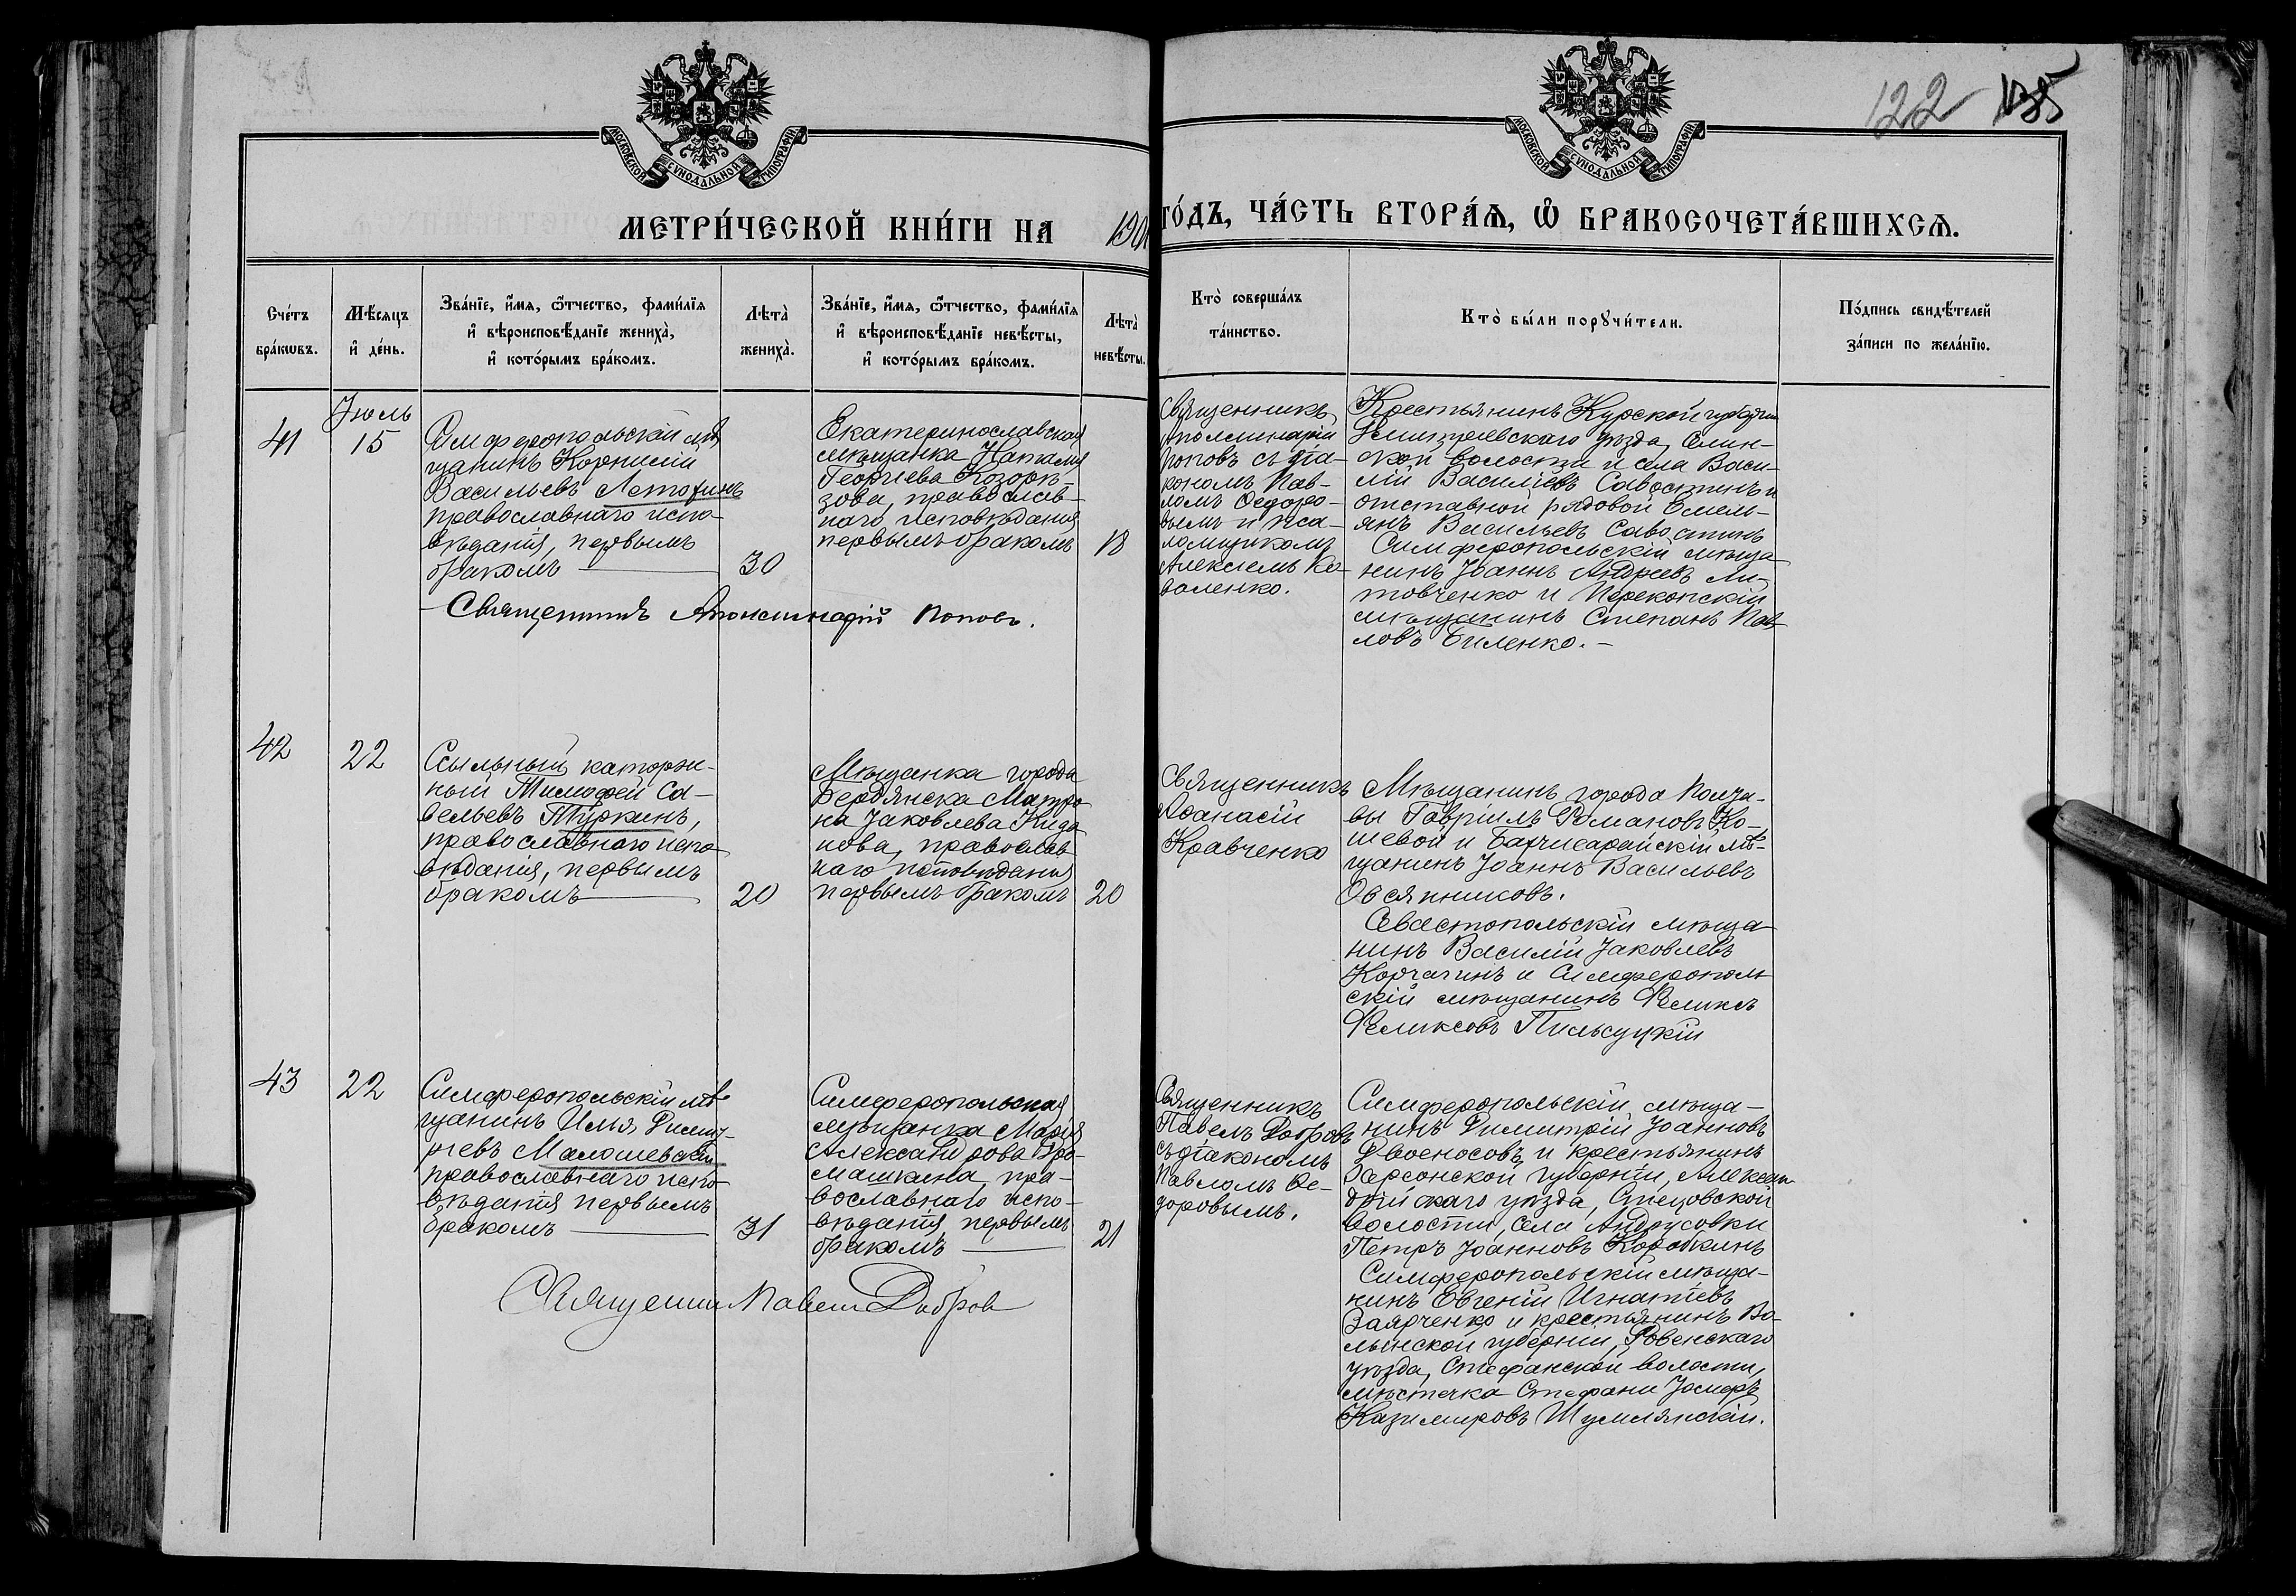 122 135
МОСКОВСКОЙ СѴНОДАЛЬНОЙ ТИПОГРАФІИ
МОСКОВСКОЙ СѴНОДАЛЬНОЙ ТИПОГРАФІИ
МЕТРИ́ЧЕСКОЙ КНИ́ГИ НА 190
ГО́ДЪ, ЧА́СТЬ ВТОРА́Я, Ѡ БРАКОСОЧЕТА́ВШИХСЯ.
Сче́тъ
бра́кѡвъ.
Мѣ́сяцъ
и҆ де́нь.
Зва́нїе, и҆́мя, ѻ҆́тчество, фами́лїя
и҆ вѣроисповѣ́данїе жениха̀,
и҆ кото́рымъ бра́комъ.
Лѣта̀
жениха̀.
Зва́нїе, и҆́мя, ѻ҆́тчество, фами́лїя
и҆ вѣроисповѣ́данїе невѣ́сты,
и҆ кото́рымъ бра́комъ.
Лѣта̀
невѣ́сты.
Кто̀ соверша́лъ
та́инство.
Кто̀ бы́ли порꙋчи́тели.
По́дпись свидѣ́телей
за́писи по жела́нїю.
41
Іюль
15
Симферопольскій мѣ
щанинъ Корнилій
Васильевъ
православнаго испо-
вѣданія, первымъ
бракомъ
30
Екатеринославская
мѣщанка Наталія
Георгіева Козорѣ-
зова, православ-
наго исповѣданія
первымъ бракомъ
18
Священникъ
Аполлинарій
Поповъ съ діа-
кономъ Пав-
ломъ Ѳеодоро-
вымъ и пса-
ломщикомъ
Алексѣемъ Ко-
валенко.
Крестьянинъ Курской губерніи
Дмитріевскаго уѣзда,
волости и села Васи-
лій Васильевъ Савостинъ и
отставной рядовой Емель-
янъ Васильевъ Савостинъ
Симферопольскій мѣща
нинъ Іоаннъ Андреевъ Ли-
товченко и Перекопскій
мѣщанинъ Степанъ Пав
ловъ Биленко.-
Священникъ Аполлинарій Поповъ.
42
22
Ссыльный каторж-
ный Тимофей Са-
вельевъ Туркинъ,
православнаго испо
вѣданія, первымъ
бракомъ
20
Мѣщанка города
Бердянска Матро
на Іаковлева Кида
нова, православ
наго исповѣданія
первымъ бракомъ
20
Священникъ
Аѳанасій
Кравченко
Мѣщанинъ города Полта-
вы Гавріилъ Романовъ Ко-
шевой и Бахчисарайскій мѣ-
щанинъ Іоаннъ Васильевъ
Овсянниковъ.
Севастопольскій мѣща
нинъ Василій Іаковлевъ
Корчагинъ и Симферополь
скій мѣщанинъ Феликсъ
Феликсовъ Пильсуцкій
43
22
Симферопольскій мѣ
щанинъ Илья Димит-
ріевъ Малошевскій
православнаго испо
вѣданія первымъ
бракомъ
31
Симферопольская
мѣщанка Марія
Александрова Ѳро-
машкина, пра-
вославнаго испо-
вѣданія, первымъ
бракомъ
21
Священникъ
Павелъ Добровъ
съ діакономъ
Павломъ Ѳе-
доровымъ.
Симферопольскій мѣща-
нинъ Димитрій Іоанновъ
Двоеносовъ и крестьянинъ
Херсонской губерніи, Алексан
дрійскаго уѣзда,
волости, села Андрусовки
Петръ Іоанновъ Коробкинъ
Симферопольскій мѣща-
нинъ Евгеній Игнатіевъ
Заярченко и крестьянинъ Во-
лынской губерніи, Ровенскаго
уѣзда, Стефанской волости,
мѣстечка Стефани Іосифъ
Казимировъ Шумлянскій.
Священник Павелъ Добров